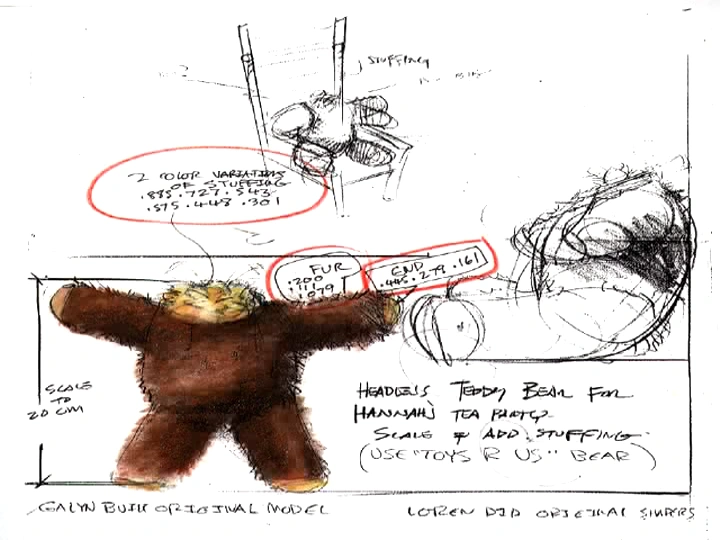 STUFFING
2 COLOR VARIATIONS
OF STUFFING
.885 .727 .543
.575 .448 .301
FUR
.200
.111
.079
END
.445 .279 .161
SCALE
TO
20 CM
HEADLESS TEDDY BEAR FOR
HANNAH'S TEA PARTY
SCALE & ADD STUFFING
(USE "TOYS R US" BEAR)
GALYN BUILT ORIGINAL MODEL
LOREN DID ORIGINAL SHADERS